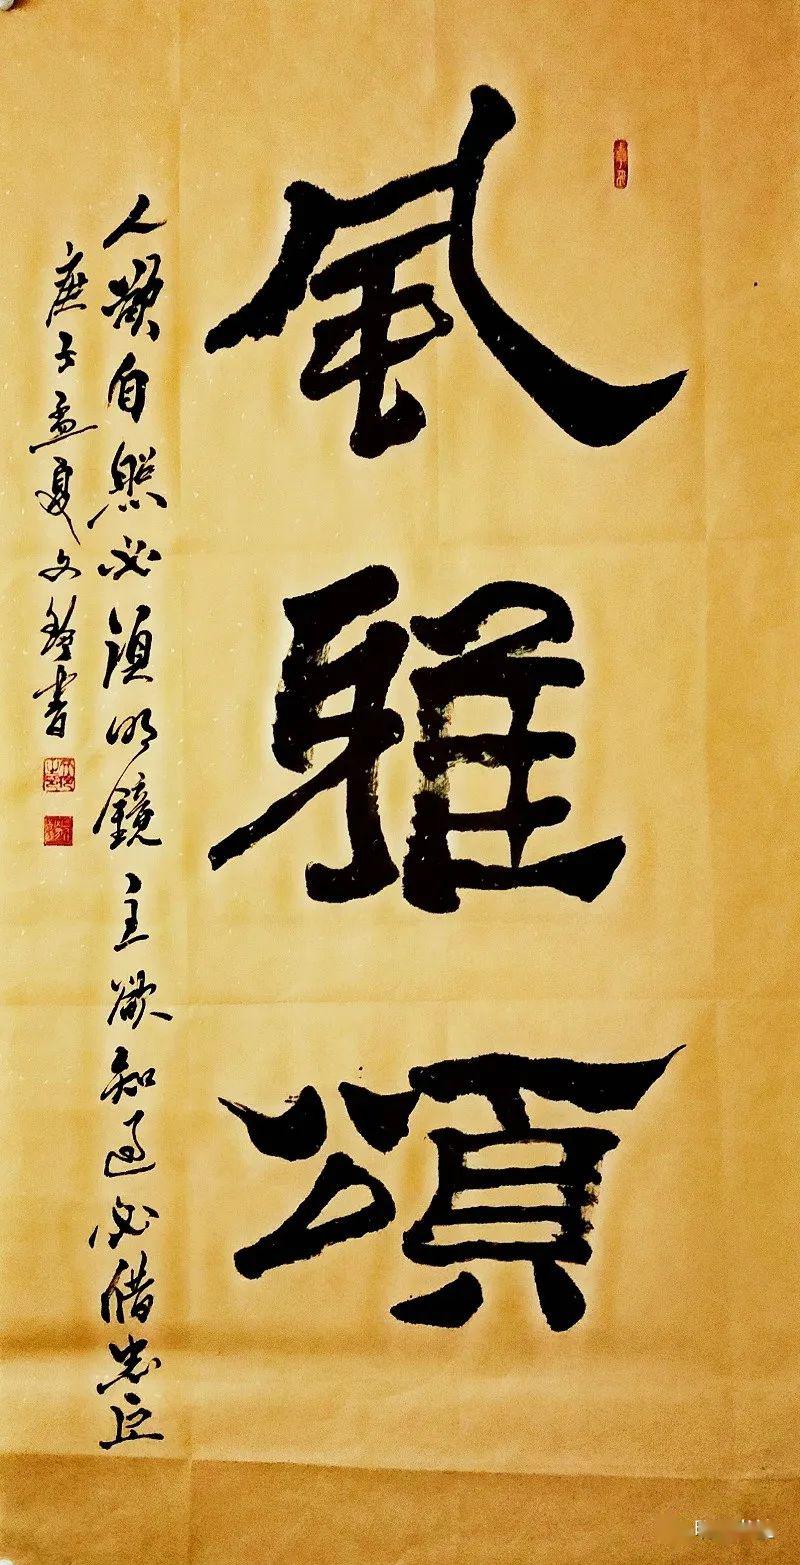 風
雅
頌
人欲自照必須明鏡主欲知過必借忠臣
庚子孟夏文書